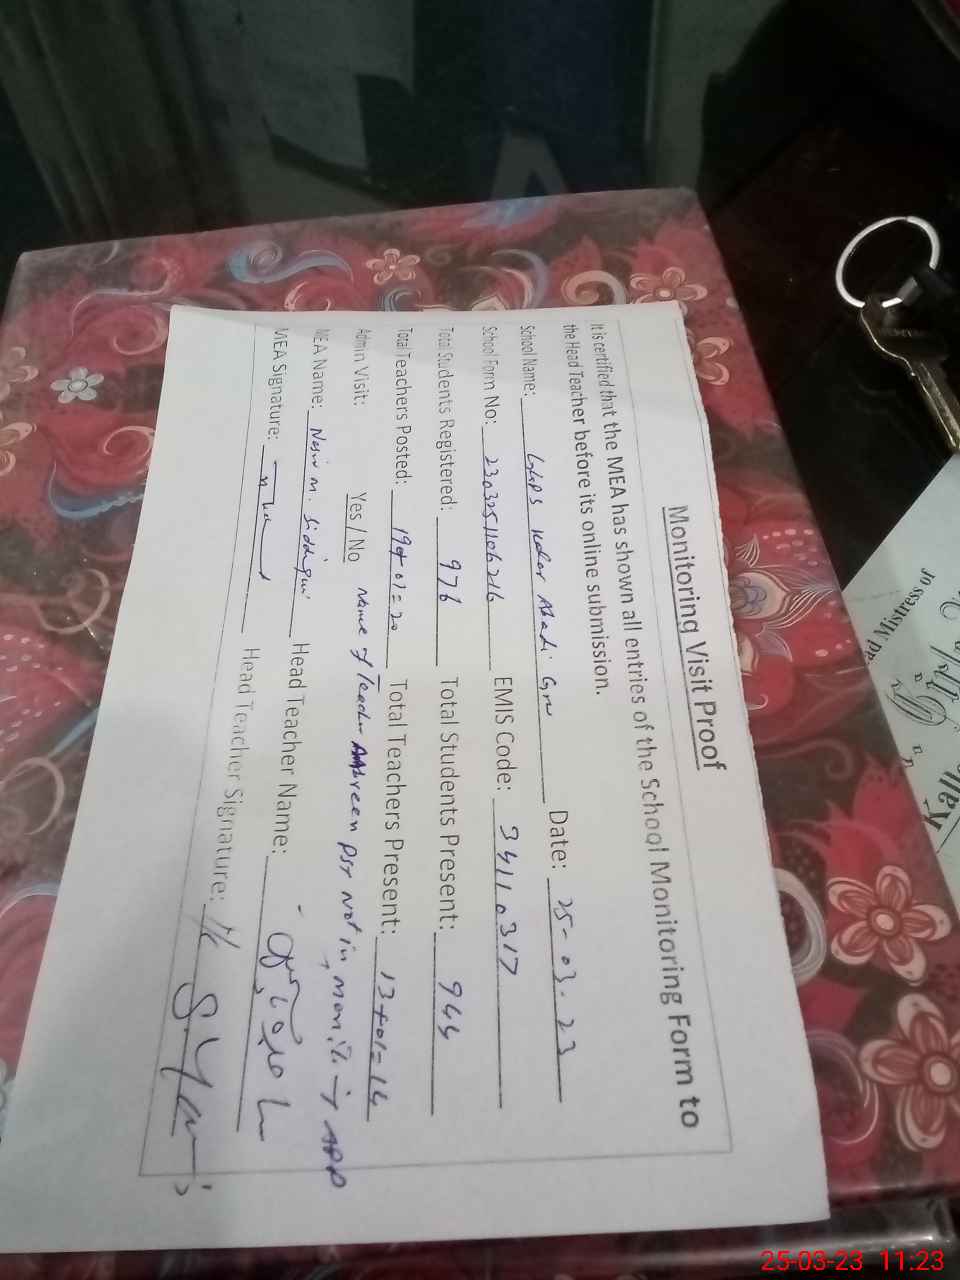 Monitoring Visit Proof
It is certified that the MEA has shown all entries of the School Monitoring Form to
the Head Teacher before its online submission.
School Name: Date: 25-03.23
School Form No: EMIS Code: 34110317
Total Students Registered: 976 Total Students Present: 944
Total Teachers Posted: 19+01=20 Total Teachers Present: 13+01=14
Admin Visit: Yes / No Name of Teacher PST Not in APP
MEA Name: Nasir M. Siddiqui Head Teacher Name:
MEA Signature: Head Teacher Signature:
ad Mistress of
25-03-23 11:23